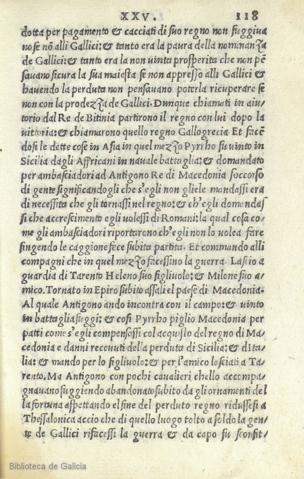 XXV. 118
dotta per pagamento & cacciati di suo regno non fuggiua
no se nō alli Gallici: & tanto era la paura della nominanza
de Gallici: & tanto era la non uinta prosperita che non pē
sauano sicura la sua maiesta se non appresso alli Gallici &
hauendo la perduta non pensauano poterla ricuperare se
non con la prodezza de Gallici. Dunque chiamati in aiu
torio dal Re de Bitinia partirono il regno con lui dopo la
uittoria: & chiamarono quello regno Gallogrecia Et facē
dosi le dette cose in Asia in quel mezzo Pyrrho fu uinto in
Sicilia dagli Affricani in nauale battaglia: & domandato
per ambasciadori ad Antigono Re di Macedonia soccorso
di gente significandogli che s'egli non gliele mandassi era
di necessita che gli tornassi nel regno: & ch'egli domandas
si che accrescimento egli uolessi di Romani: la qual cosa co
me gli ambasciadori riportarono ch'egli non lo uolea fare
fingendo le caggioni fece subita partita. Et commando alli
compagni che in quel mezzo facessino la guerra. Lascio a
guardia di Tarento Heleno suo figliuolo: & Milone suo a
mico. Tornato in Epiro subito assali el paese di Macedonia.
Al quale Antigono ando incontra con il campo: & uinto
in battaglia fuggi: & cosi Pyrrho piglio Macedonia per
patti come s'egli compensassi col acquisto del regno di Ma-
cedonia e danni receuuti della perduta di Sicilia: & di Ita
lia: & mando per lo figliuolo: & per l'amico lasciati a Ta-
rento. Ma Antigono con pochi caualieri che lo accompa
gnauano fuggiendo abandonato subito da gli ornamenti del
la fortuna aspettando el fine del perduto regno ridussesi a
Thessalonica accio che di quello luogo tolto a soldo la gen-
te de Gallici rifacessi la guerra & da capo fu sconfit-
Biblioteca de Galicia